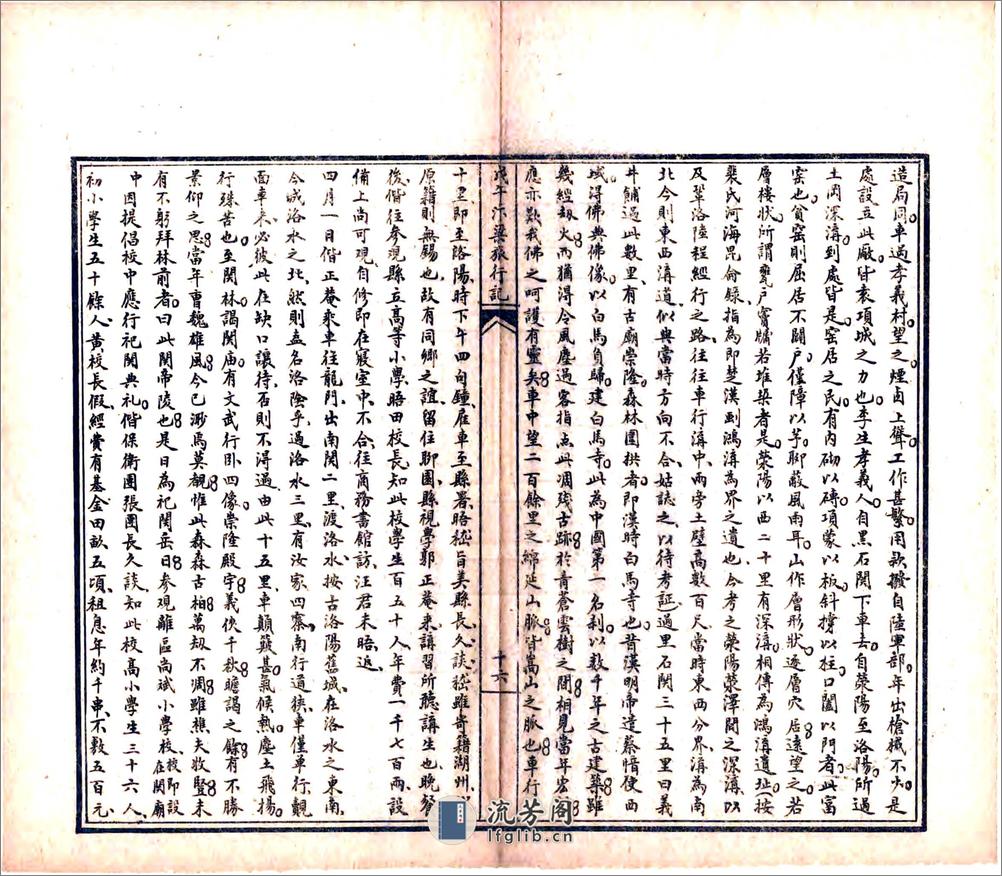 造局同車過孝義村望之煙囱上聳工作甚繁用款撥自陸軍部年出槍械不少是
處設立此廠皆袁項城之力也李生孝義人自黑石關下車去自滎陽至洛陽所過
土岡深溝到處皆是窑居之民有内砌以磚項蒙以板斜撐以柱口闔以門者此富
窑也貧窑則屈居不闢戶僅障以茅聊蔽風雨耳山作層形狀逐層穴居遠望之若
層樓狀所謂甕戶竇牖若堆垜者是滎陽以西二十里有深溝相傳為鴻溝遺址按
裴氏河海昆侖錄指為即楚漢劃鴻溝為界之遺也今考之滎陽滎澤間之深溝以
及鞏洛陸程經行之路往往車行溝中兩旁土壁高數百尺當時東西分界溝為南
北今則東西溝道似與當時方向不合姑誌之以待考証過里石關三十五里曰義
井鋪過此數里有古廟崇隆森林圍拱者即漢時白馬寺也昔漢明帝遣蔡愔使西
域得佛典佛像以白馬負歸建白馬寺此為中國第一名刹以數千年之古建築雖
幾經劫火而猶得令風塵過客指点此凋殘古跡於青蒼雲樹之間相見當年宏
應亦歎我佛之呵護有靈矣車中望二百餘里之綿延山脈皆嵩山之脈也車行
戊午汴梁旅行記
十六
十里即至洛陽時下午四句鐘雇車至縣署晤嵇旨美縣長久談嵇雖寄籍湖州
原籍則無錫也故有同鄉之誼留住聊園縣視學郭正菴来講習所聽講生也晚餐
後偕往参觀縣立高等小學晤田校長知此校學生百五十人年費一千七百兩設
備上尚可觀自修即在寢室中不合往商務書館訪汪君未晤返
四月一日偕正菴乘車往龍門出南關二里渡洛水按古洛陽舊城在洛水之東南
今城洛水之北然則孟名洛陰乎過洛水三里有汝家四寨南行道狹車僅車行覩
面車来必彼此在缺口讓待否則不得過由此十五里車顛簸甚氣候熱塵土飛揚
行殊苦也至関林謁関庙有文武行卧四像崇隆殿宇義俠千秋瞻謁之餘有不勝
景仰之思當年曹魏雄風今已渺焉莫覩惟此森森古柏萬刼不凋雖樵夫收豎未
有不躬拜林前者曰此関帝陵也是日為祀関岳日参觀離區尚斌小學校校即設在関廟
中因提倡校中應行祀関典礼偕保衛團張團長久談知此校高小學生三十六人
初小學生五十餘人黄校長假經費有基金田畝五項租息年約千串不敷五百元
流芳阁
lfglib.cn